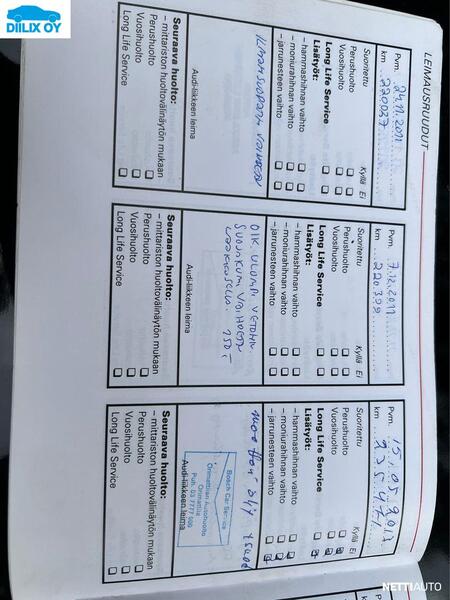 DIILIX OY
LEIMAUSRUUDUT
Pvm. 24.11.2011
km 220037
Suoritettu Kyllä Ei
Perushuolto
Vuosihuolto
Long Life Service
Lisätyöt:
– hammashihnan vaihto
– moniurahihnan vaihto
– jarrunesteen vaihto
Audi-liikkeen leima
Seuraava huolto:
– mittariston huoltovälinäytön mukaan
Perushuolto
Vuosihuolto
Long Life Service
Pvm. 7.12.2011
km 220398
Suoritettu Kyllä Ei
Perushuolto
Vuosihuolto
Long Life Service
Lisätyöt:
– hammashihnan vaihto
– moniurahihnan vaihto
– jarrunesteen vaihto
OIK ULOMPI VETOAK
150,-
Audi-liikkeen leima
Seuraava huolto:
– mittariston huoltovälinäytön mukaan
Perushuolto
Vuosihuolto
Long Life Service
Pvm. 15.05.2012
km
Suoritettu Kyllä Ei
Perushuolto
Vuosihuolto
Long Life Service
Lisätyöt:
– hammashihnan vaihto
– moniurahihnan vaihto
– jarrunesteen vaihto
Bosch Car Service
Orimattilan Autohuolto
Orimattila
Puh. 03 7777 500
Audi-liikkeen leima
Seuraava huolto:
– mittariston huoltovälinäytön mukaan
Perushuolto
Vuosihuolto
Long Life Service
NETTIAUTO